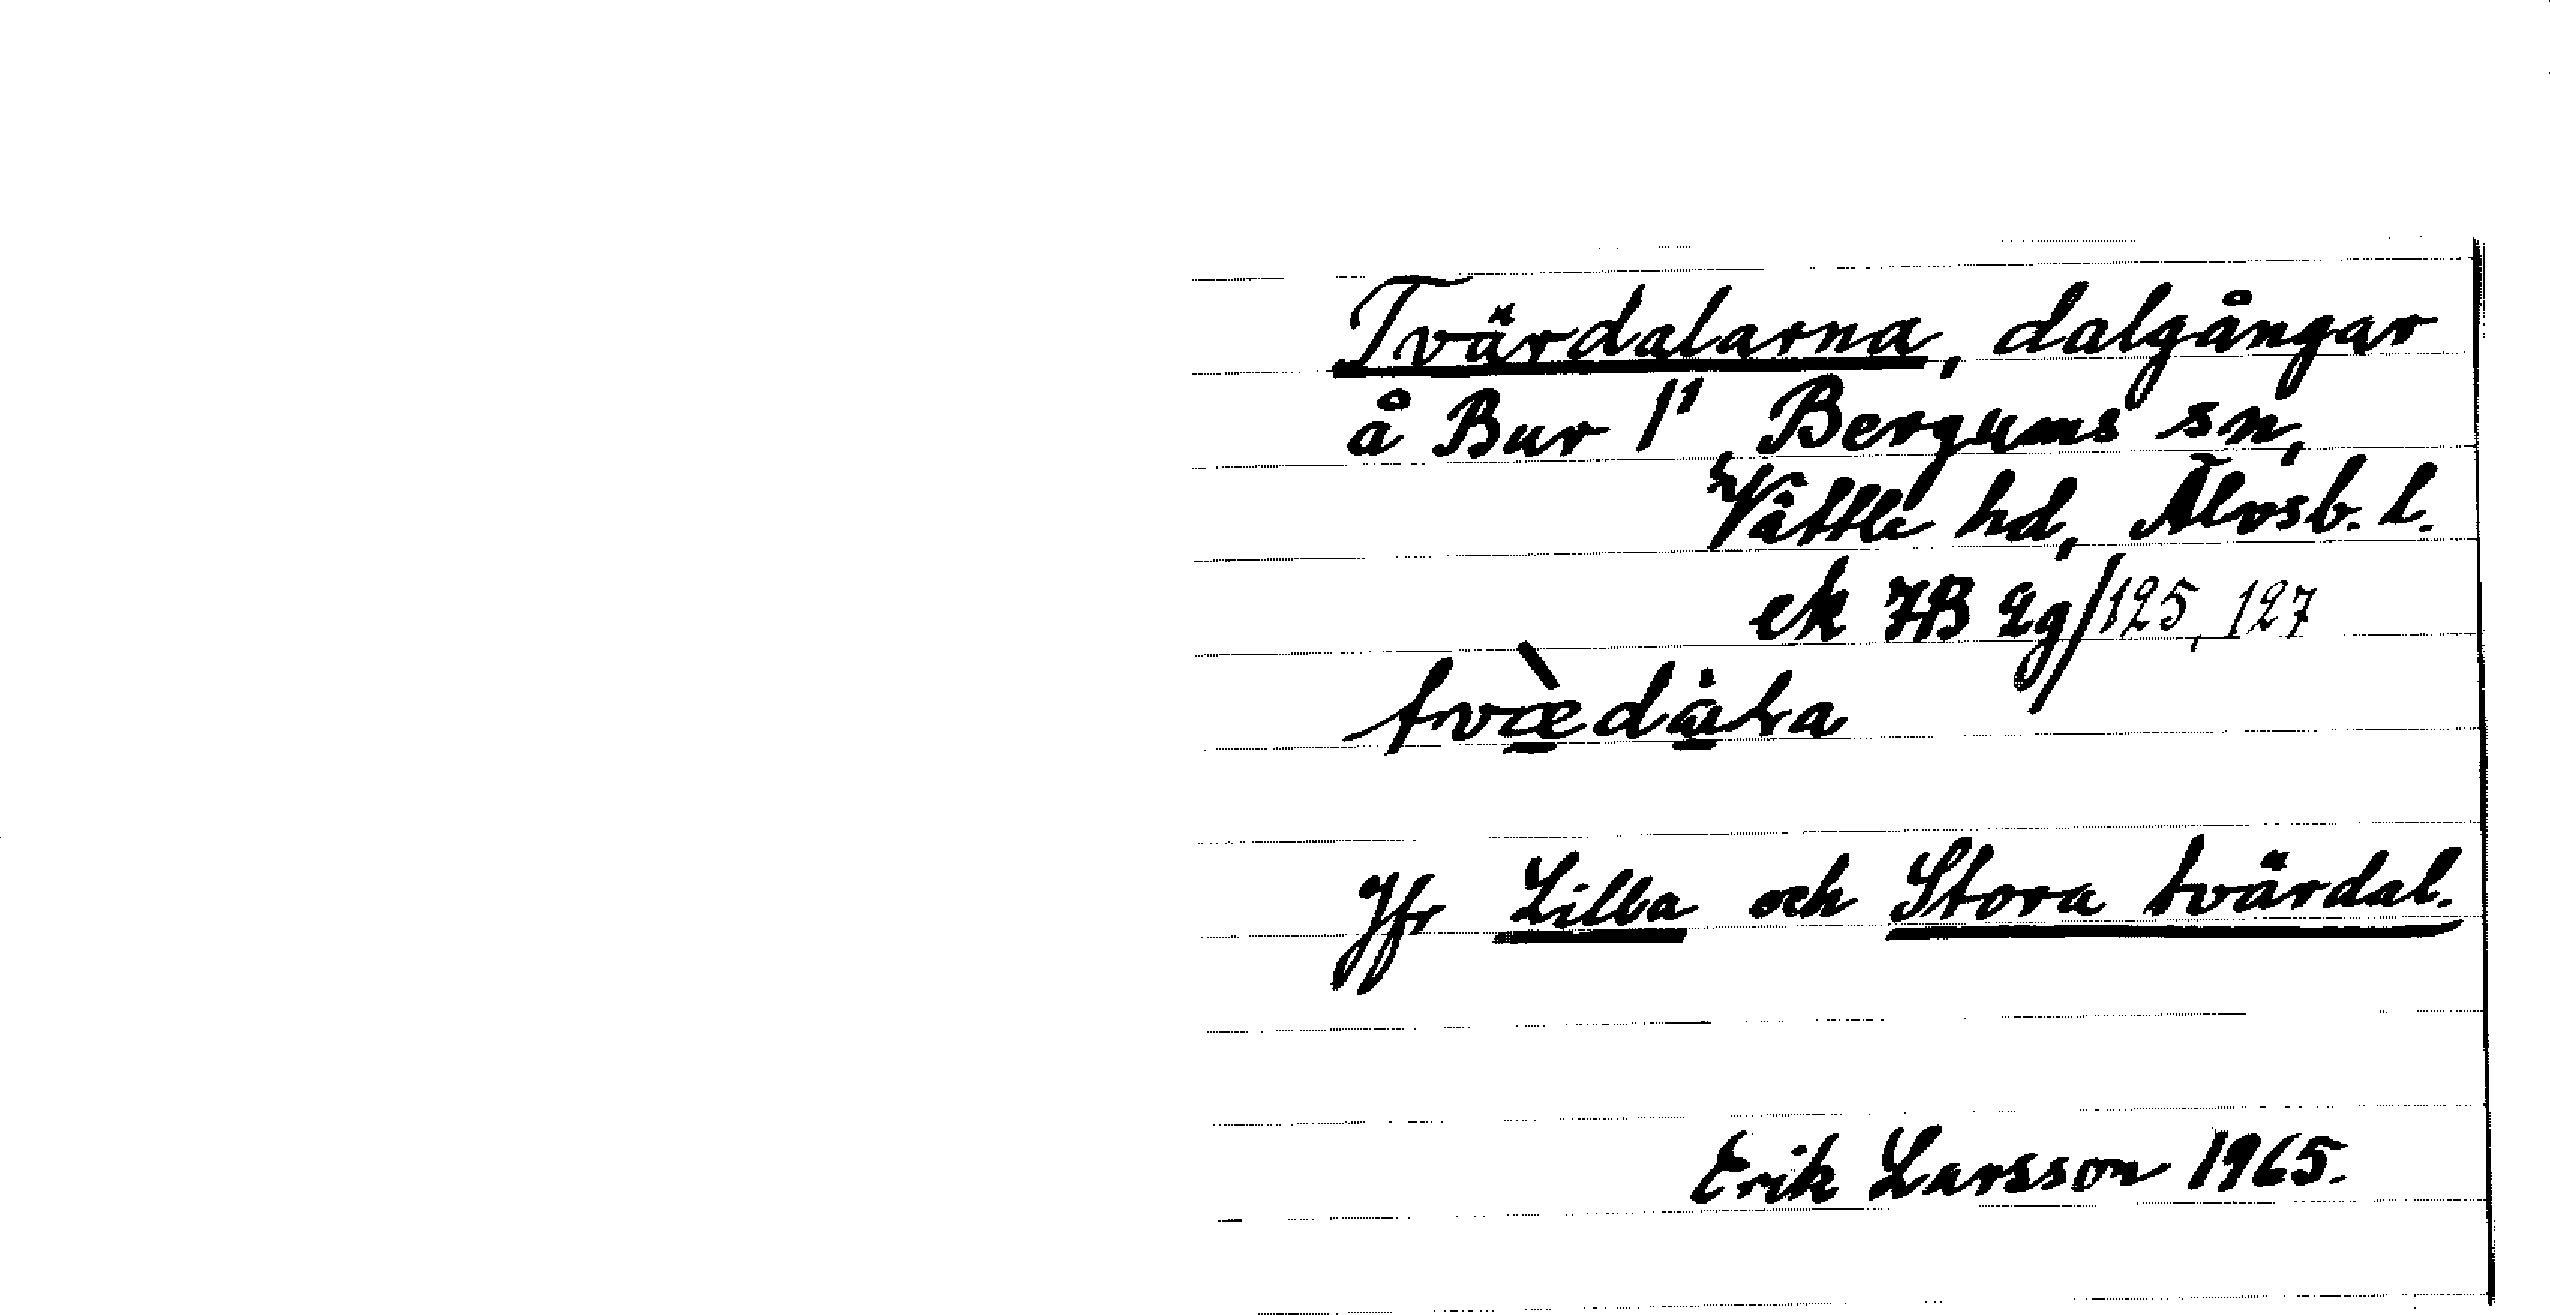 Tvärdalarna, dalgångar
å Bur 1¹ Bergums sn,
Vättle hd, Älvsb. l.
ek 7B 2g/125, 127
tvæ̀dȧla
Jfr Lilla och Stora tvärdal.
Erik Larsson 1965.